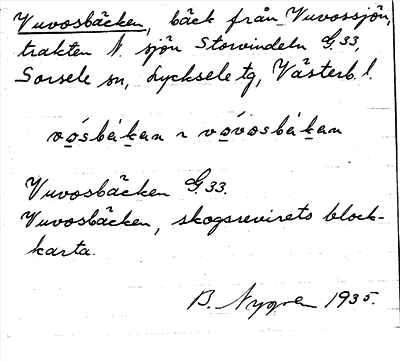 Vuvosbäcken, bäck från Vuvossjön,
trakten N. sjön Storvindeln G.33,
Sorsele sn, Lycksele tg, Västerb. l.
vó̲sbä́k̲an ~ vó̲vosbä́k̲an
Vuvosbäcken G.33.
Vuvosbäcken, skogsrevirets block-
karta.
B. Nygren 1935.